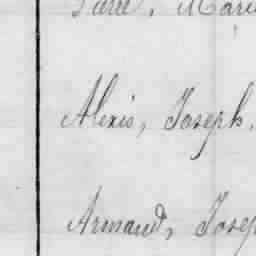 Marie
Alexis, Joseph,
Armand, Josep